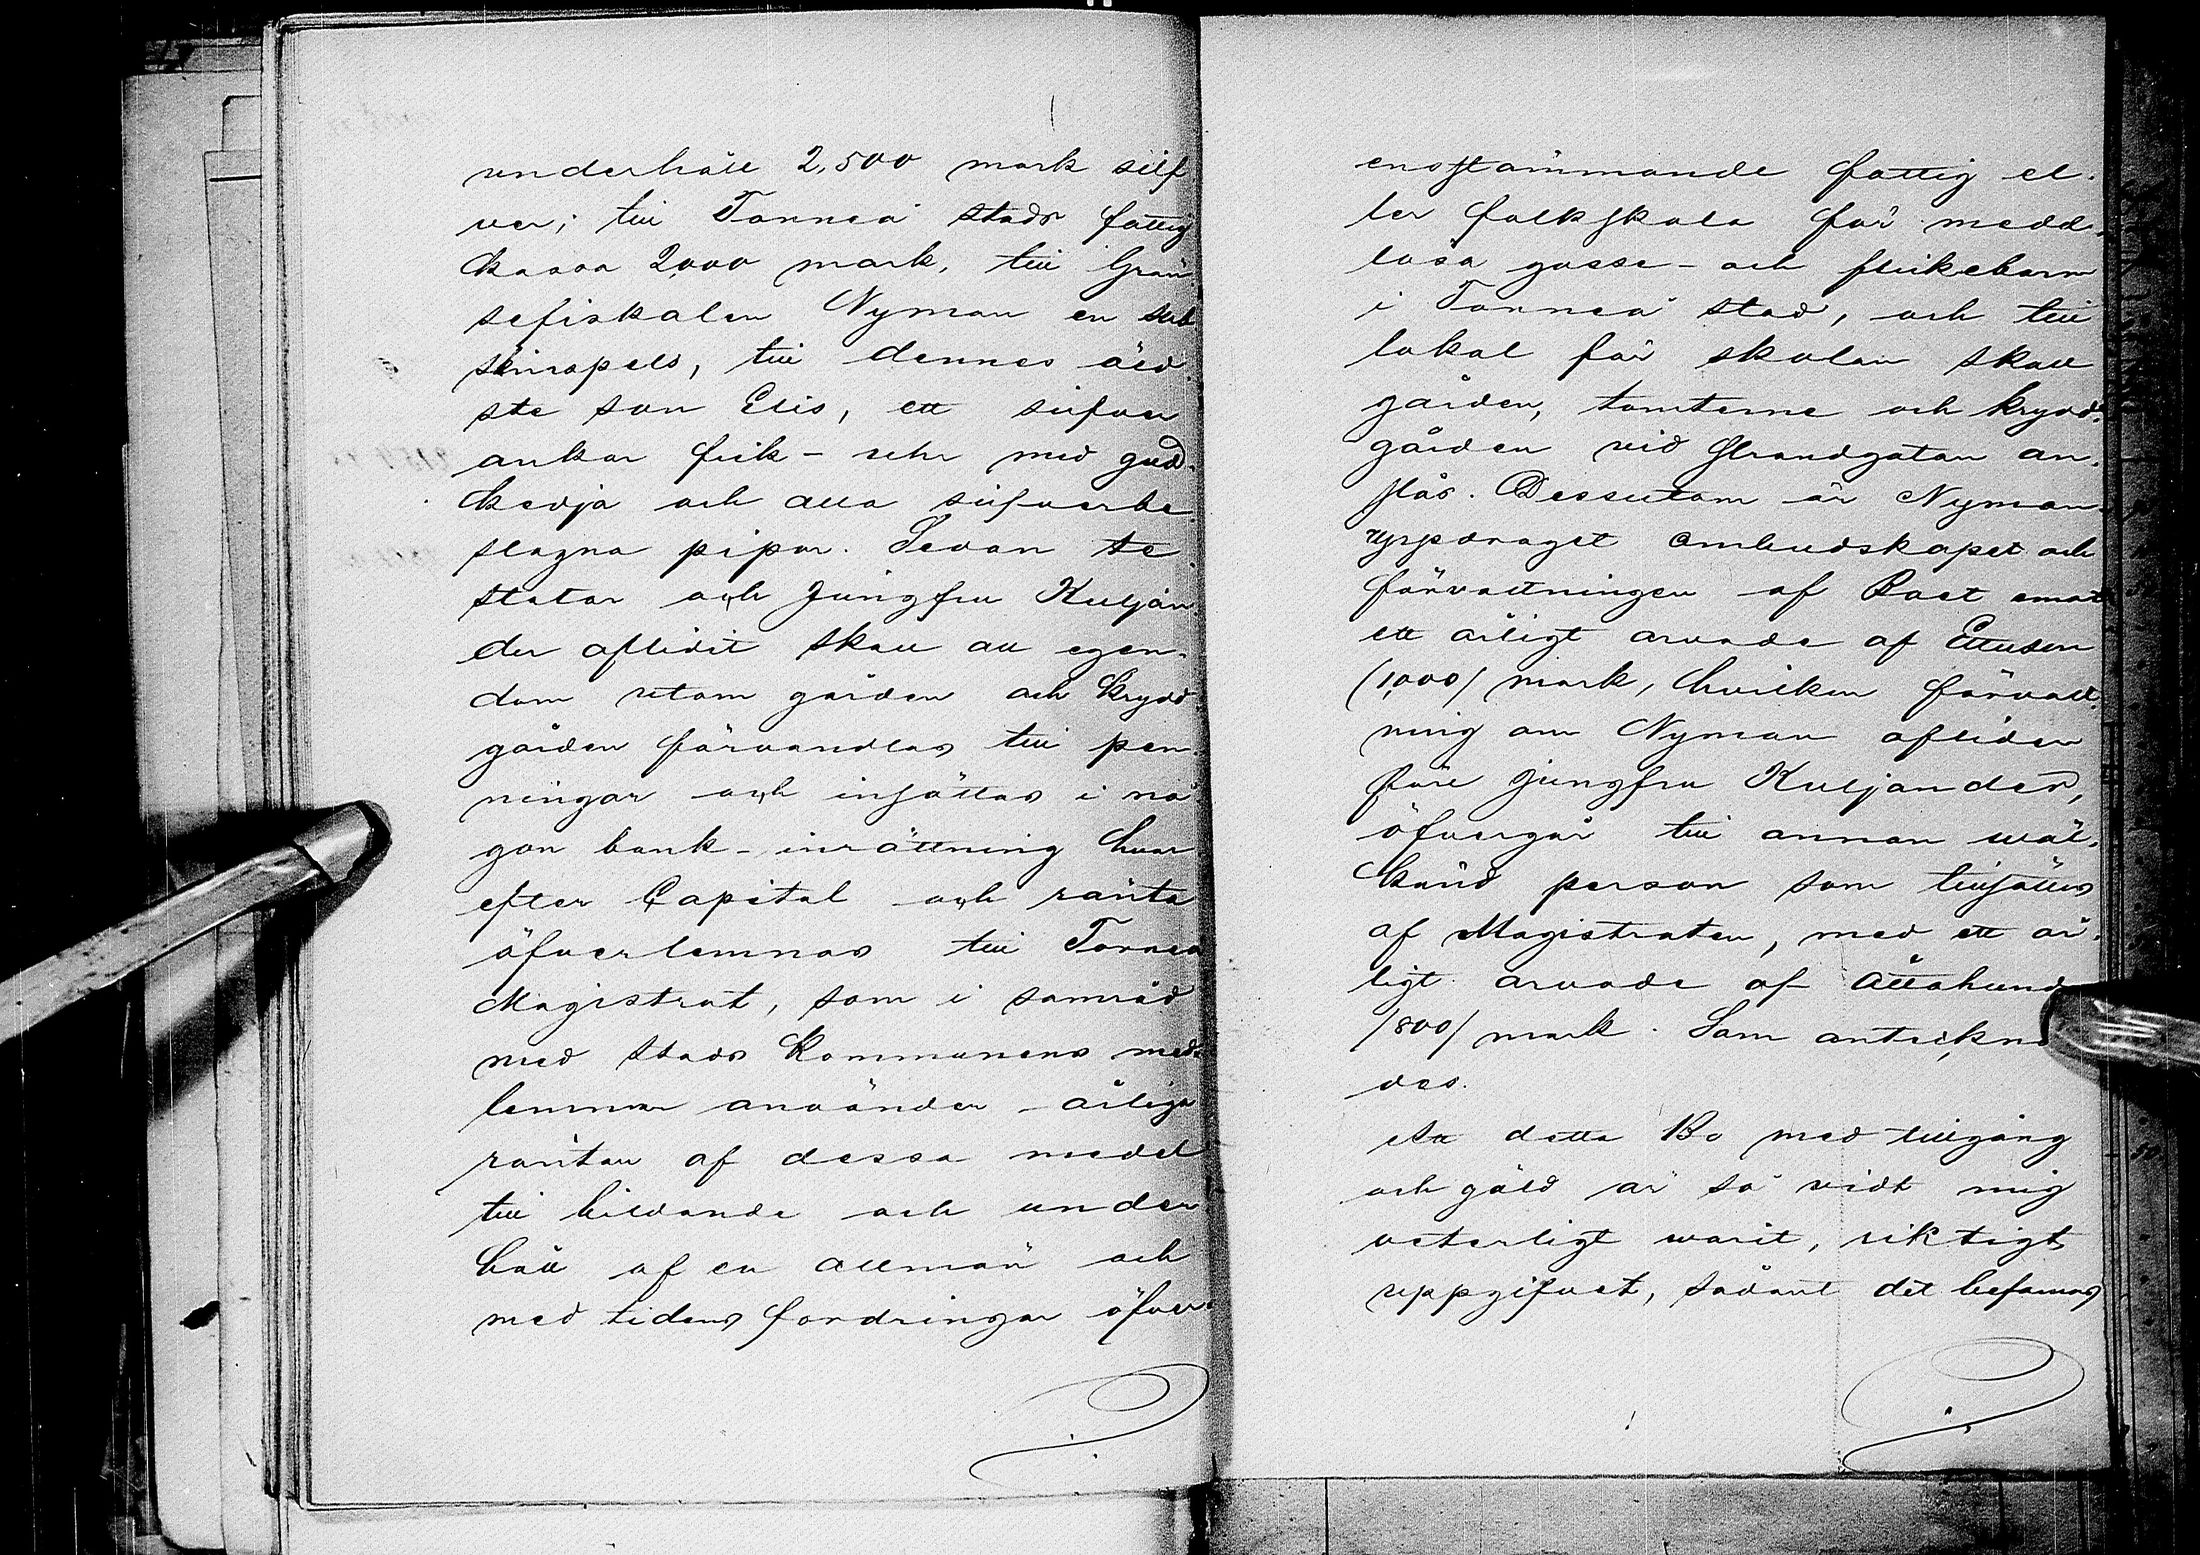 underhåll 2,500 mark silf
ver; till Torneå stads fattig
kassa 2000 mark, till Grän
sefiskalen Nyman en sub
skinspels, till dennes äld.
ste son Elis, ett silfver
ankar fick-uhr med guld.
kedja och alla silfverbe
slagna pipor. Sedan te
stator och Jungfru Kuljan
der aflidit skall all egen.
dom utom gården och krydd
gården förvandlas till pen.
ningar och insättas i nå
gon bank-inrättning hvar
efter Capital och ränta
öfverlemnas till Torneå
Magistrat, som i samråd
med stads kommunens med.
lemmar använder årliga
räntan af dessa medel
till bildande och under
håll af en allmän och
med tidens fordringar öfver
ensstämmande fattig el.
ler folkskola för medel.
lösa gosse- och flickebarn
i Torneå stad, och till
lokal för skolan skall
gården, tomterne och krydd.
gården vid Strandgatan an.
slås. Dessutom är Nyman
uppdraget ombudskapet och
förvaltningen af Boet emot
ett årligt arvode af Ettusen
/1,000/ mark, hvilken förvalt.
ning om Nyman afliden
före jungfru Kuljander,
öfvergår till annan wäl.
känd person som tillsättes
af Magistraten, med ett år.
ligt arvode af Åttahund
/800/ mark. Som antekn
des.
Att detta Bo med tillgång
och gäld är så vidt mig
veterligt warit, riktigt
uppgifvet, sådant det befanns